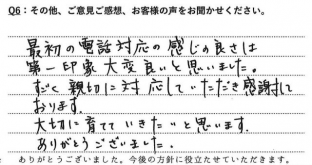 Q6：その他、ご意見ご感想、お客様の声をお聞かせください。
最初の電話対応の感じの良さは
第一印象大変良いと思いました。
すごく親切に対応していただき感謝して
おります。
大切に育てていきたいと思います。
ありがとうございました。
ありがとうございました。今後の方針に役立たせていただきます。